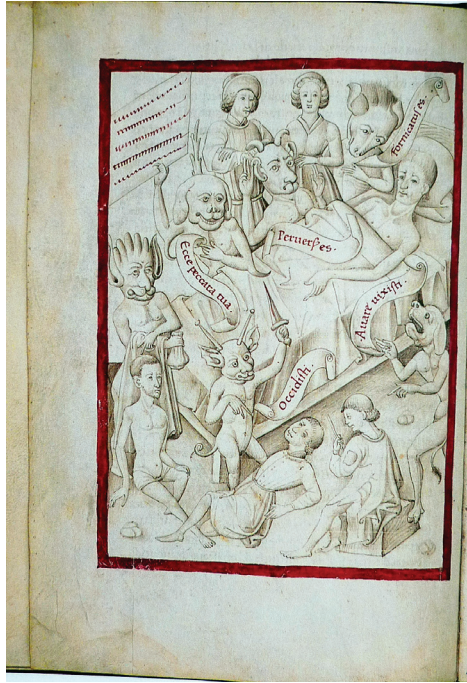 Fornicatus es.
Periurus es.
Ecce peccata tua.
Avare vixisti.
Occidisti.